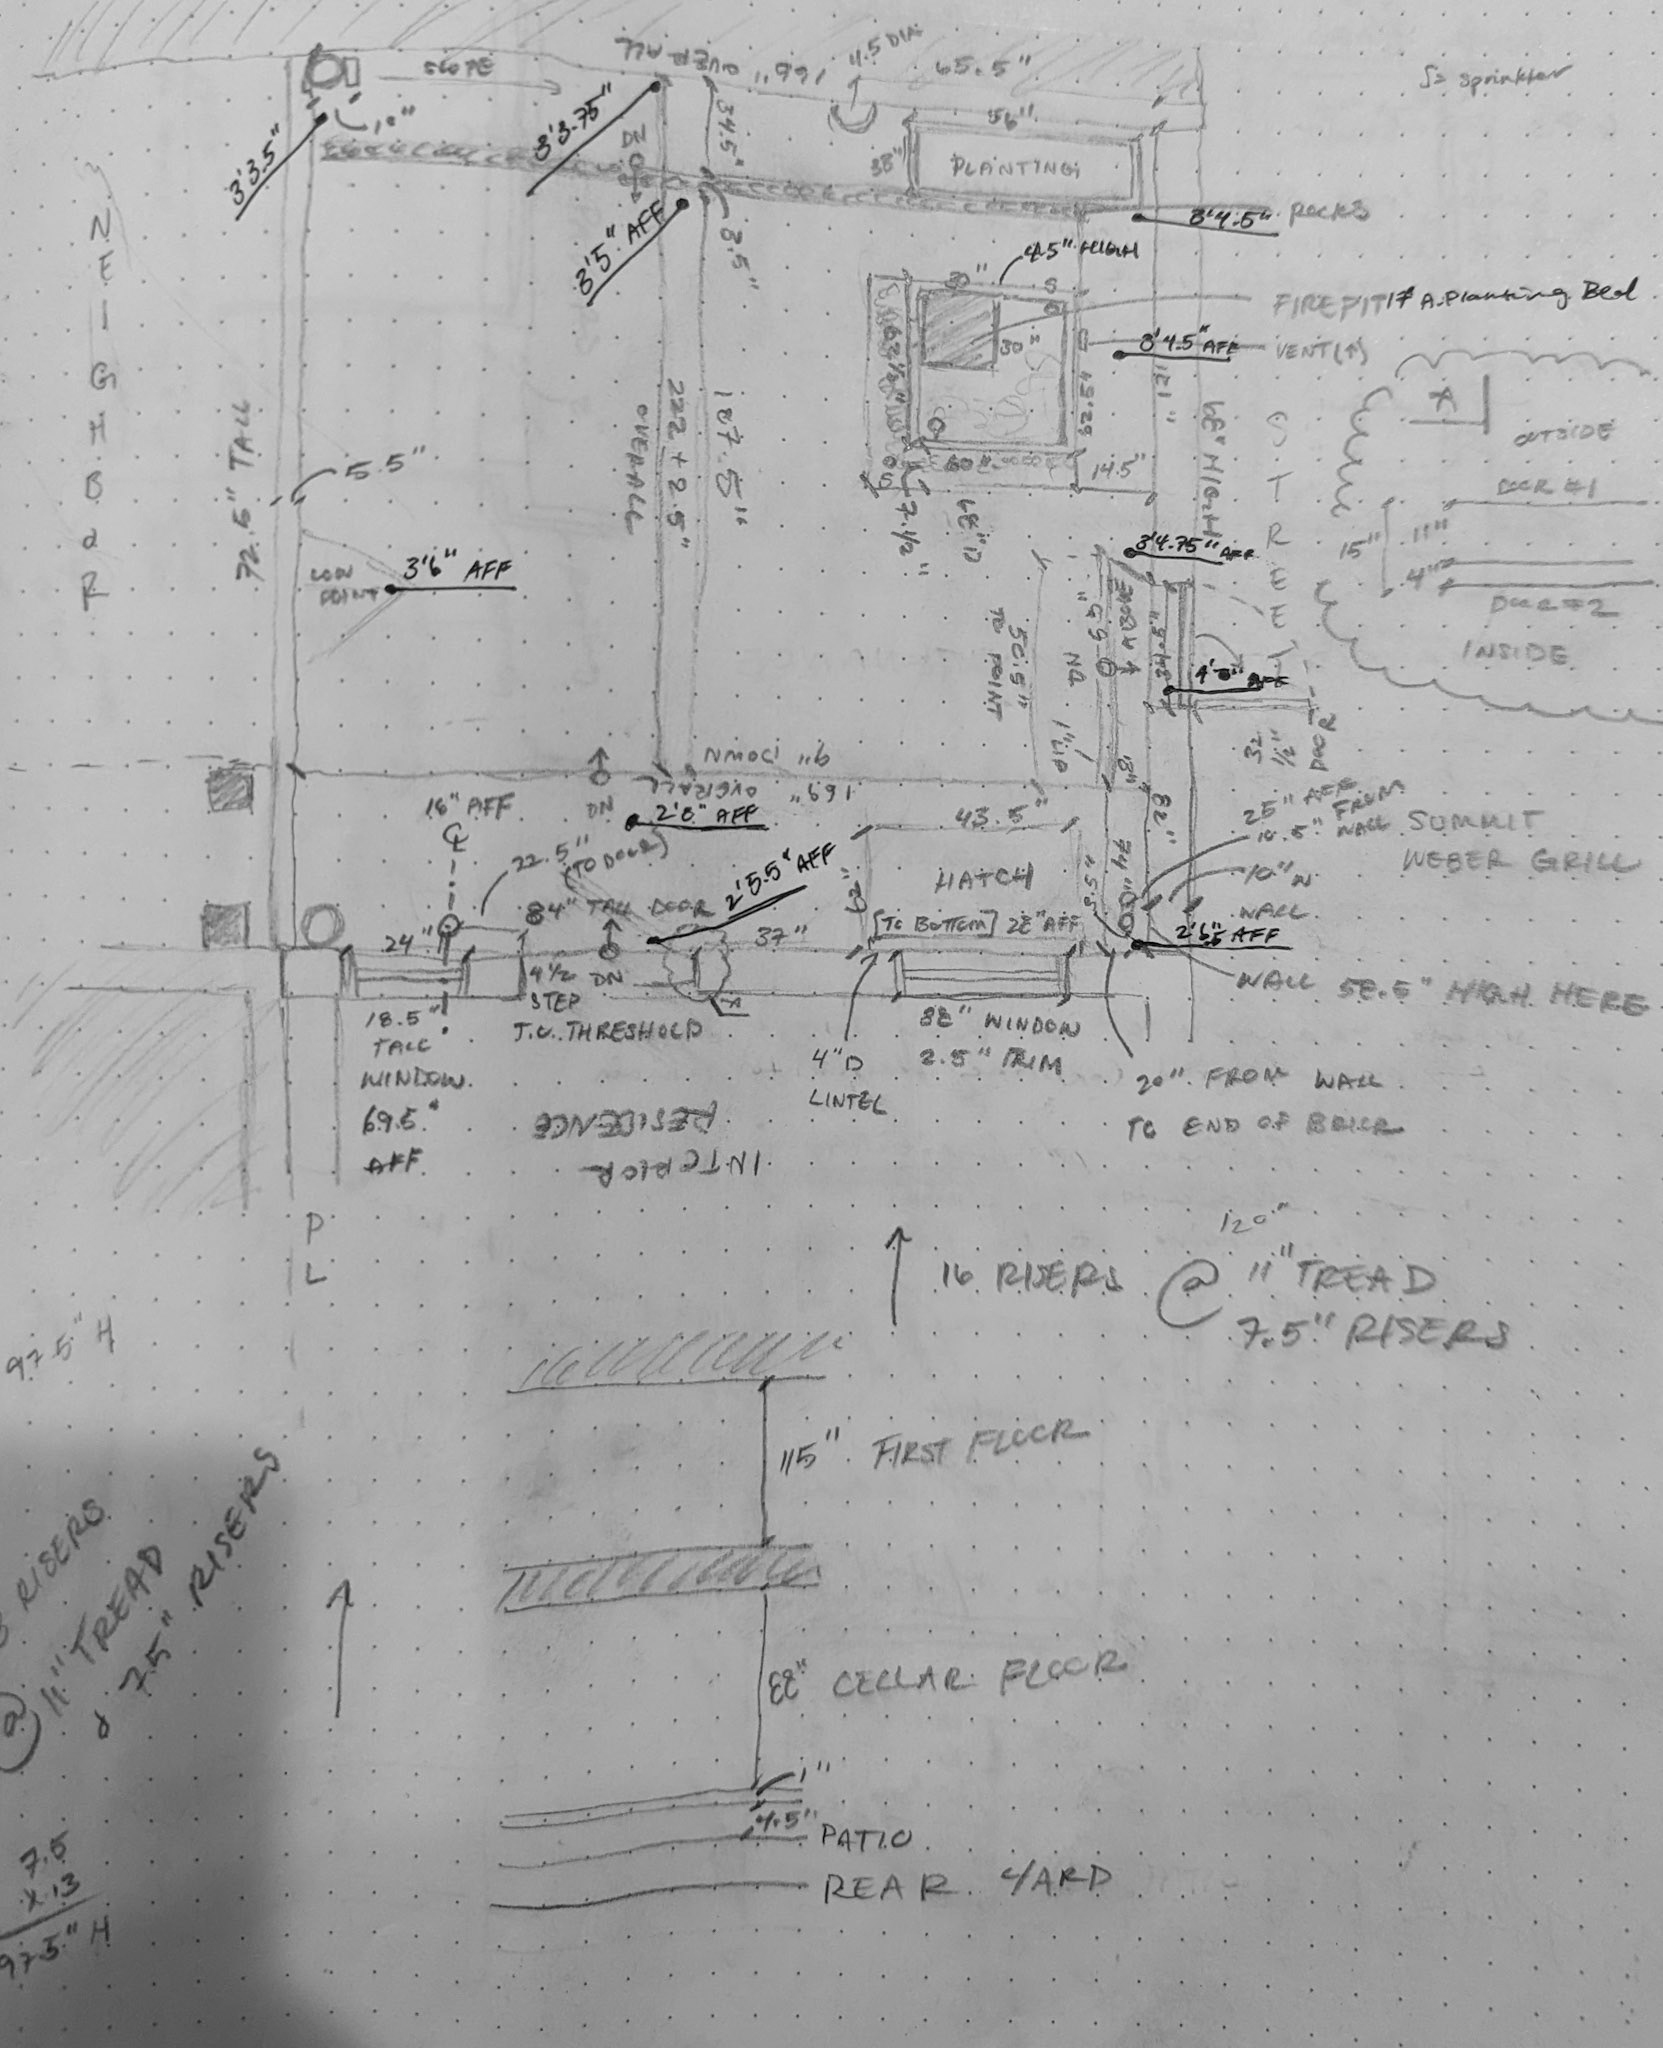 SLOPE
166" OVERALL
11.5 DIA
65.5"
S= sprinkler
3'3.5"
10"
3'3.75"
DN
34.5"
56"
38"
PLANTING
3'4.5"
ROCKS
3'5" AFF
3.5"
45" HIGH
30"
S
FIREPIT IF A. Planting Bed
30"
3'4.5" AFF
VENT(↑)
62 1/2"
62.5"
121"
68" HIGH
NEIGHBOR
72.5" TALL
5.5"
222 + 2.5"
OVERALL
187.5"
60"
14.5"
7 1/2"
STREET
A
OUTSIDE
DOOR #1
15"
11"
4"
DOOR #2
INSIDE
LOW
POINT
3'6" AFF
3'4.75" AFF
50.5"
TO POINT
ABOVE
1" LIP
18"
37
1/2"
DOOR
9" DOWN
169" OVERALL
16" AFF
DN
2'8" AFF
22.5"
(TO DOOR)
2'5.5" AFF
43.5"
HATCH
[TO BOTTOM] 28" AFF
29"
74"
82"
25" AFF
FROM
WALL
SUMMIT
WEBER GRILL
10" IN
WALL
24"
84" TALL DOOR
37"
4 1/2
STEP
DN
T.O. THRESHOLD
WALL 58.5" HIGH HERE
18.5"
TALL
WINDOW
69.5"
AFF
4" D
LINTEL
38" WINDOW
2.5" TRIM
20" FROM WALL
TO END OF BRICK
INTERIOR
RESIDENCE
PL
120"
16 RISERS @ 11" TREAD
7.5" RISERS
97.5" H
115" FIRST FLOOR
RISERS
@ 11" TREAD
7.5" RISERS
88" CELLAR FLOOR
1"
4.5"
PATIO
REAR YARD
7.5
x 13
97.5" H